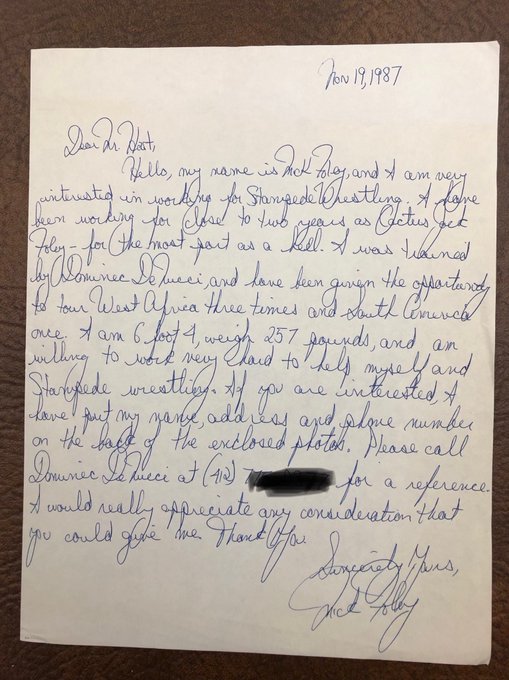 Nov 19, 1987
Dear Mr. Hart,
Hello, my name is Mick Foley, and I am very
interested in working for Stampede Wrestling. I have
been working for close to two years as Cactus Jack
Foley - for the most part as a heel. I was trained
by Dominic DeNucci, and have been given the opportunity
to tour West Africa three times and South America
once. I am 6 foot 4, weigh 257 pounds, and am
willing to work very hard to help myself and
Stampede wrestling. If you are interested, I
have put my name, address and phone number
on the back of the enclosed photos. Please call
Dominic DeNucci at (412) for a reference.
I would really appreciate any consideration that
you could give me. Thank You
Sincerely Yours,
Mick Foley